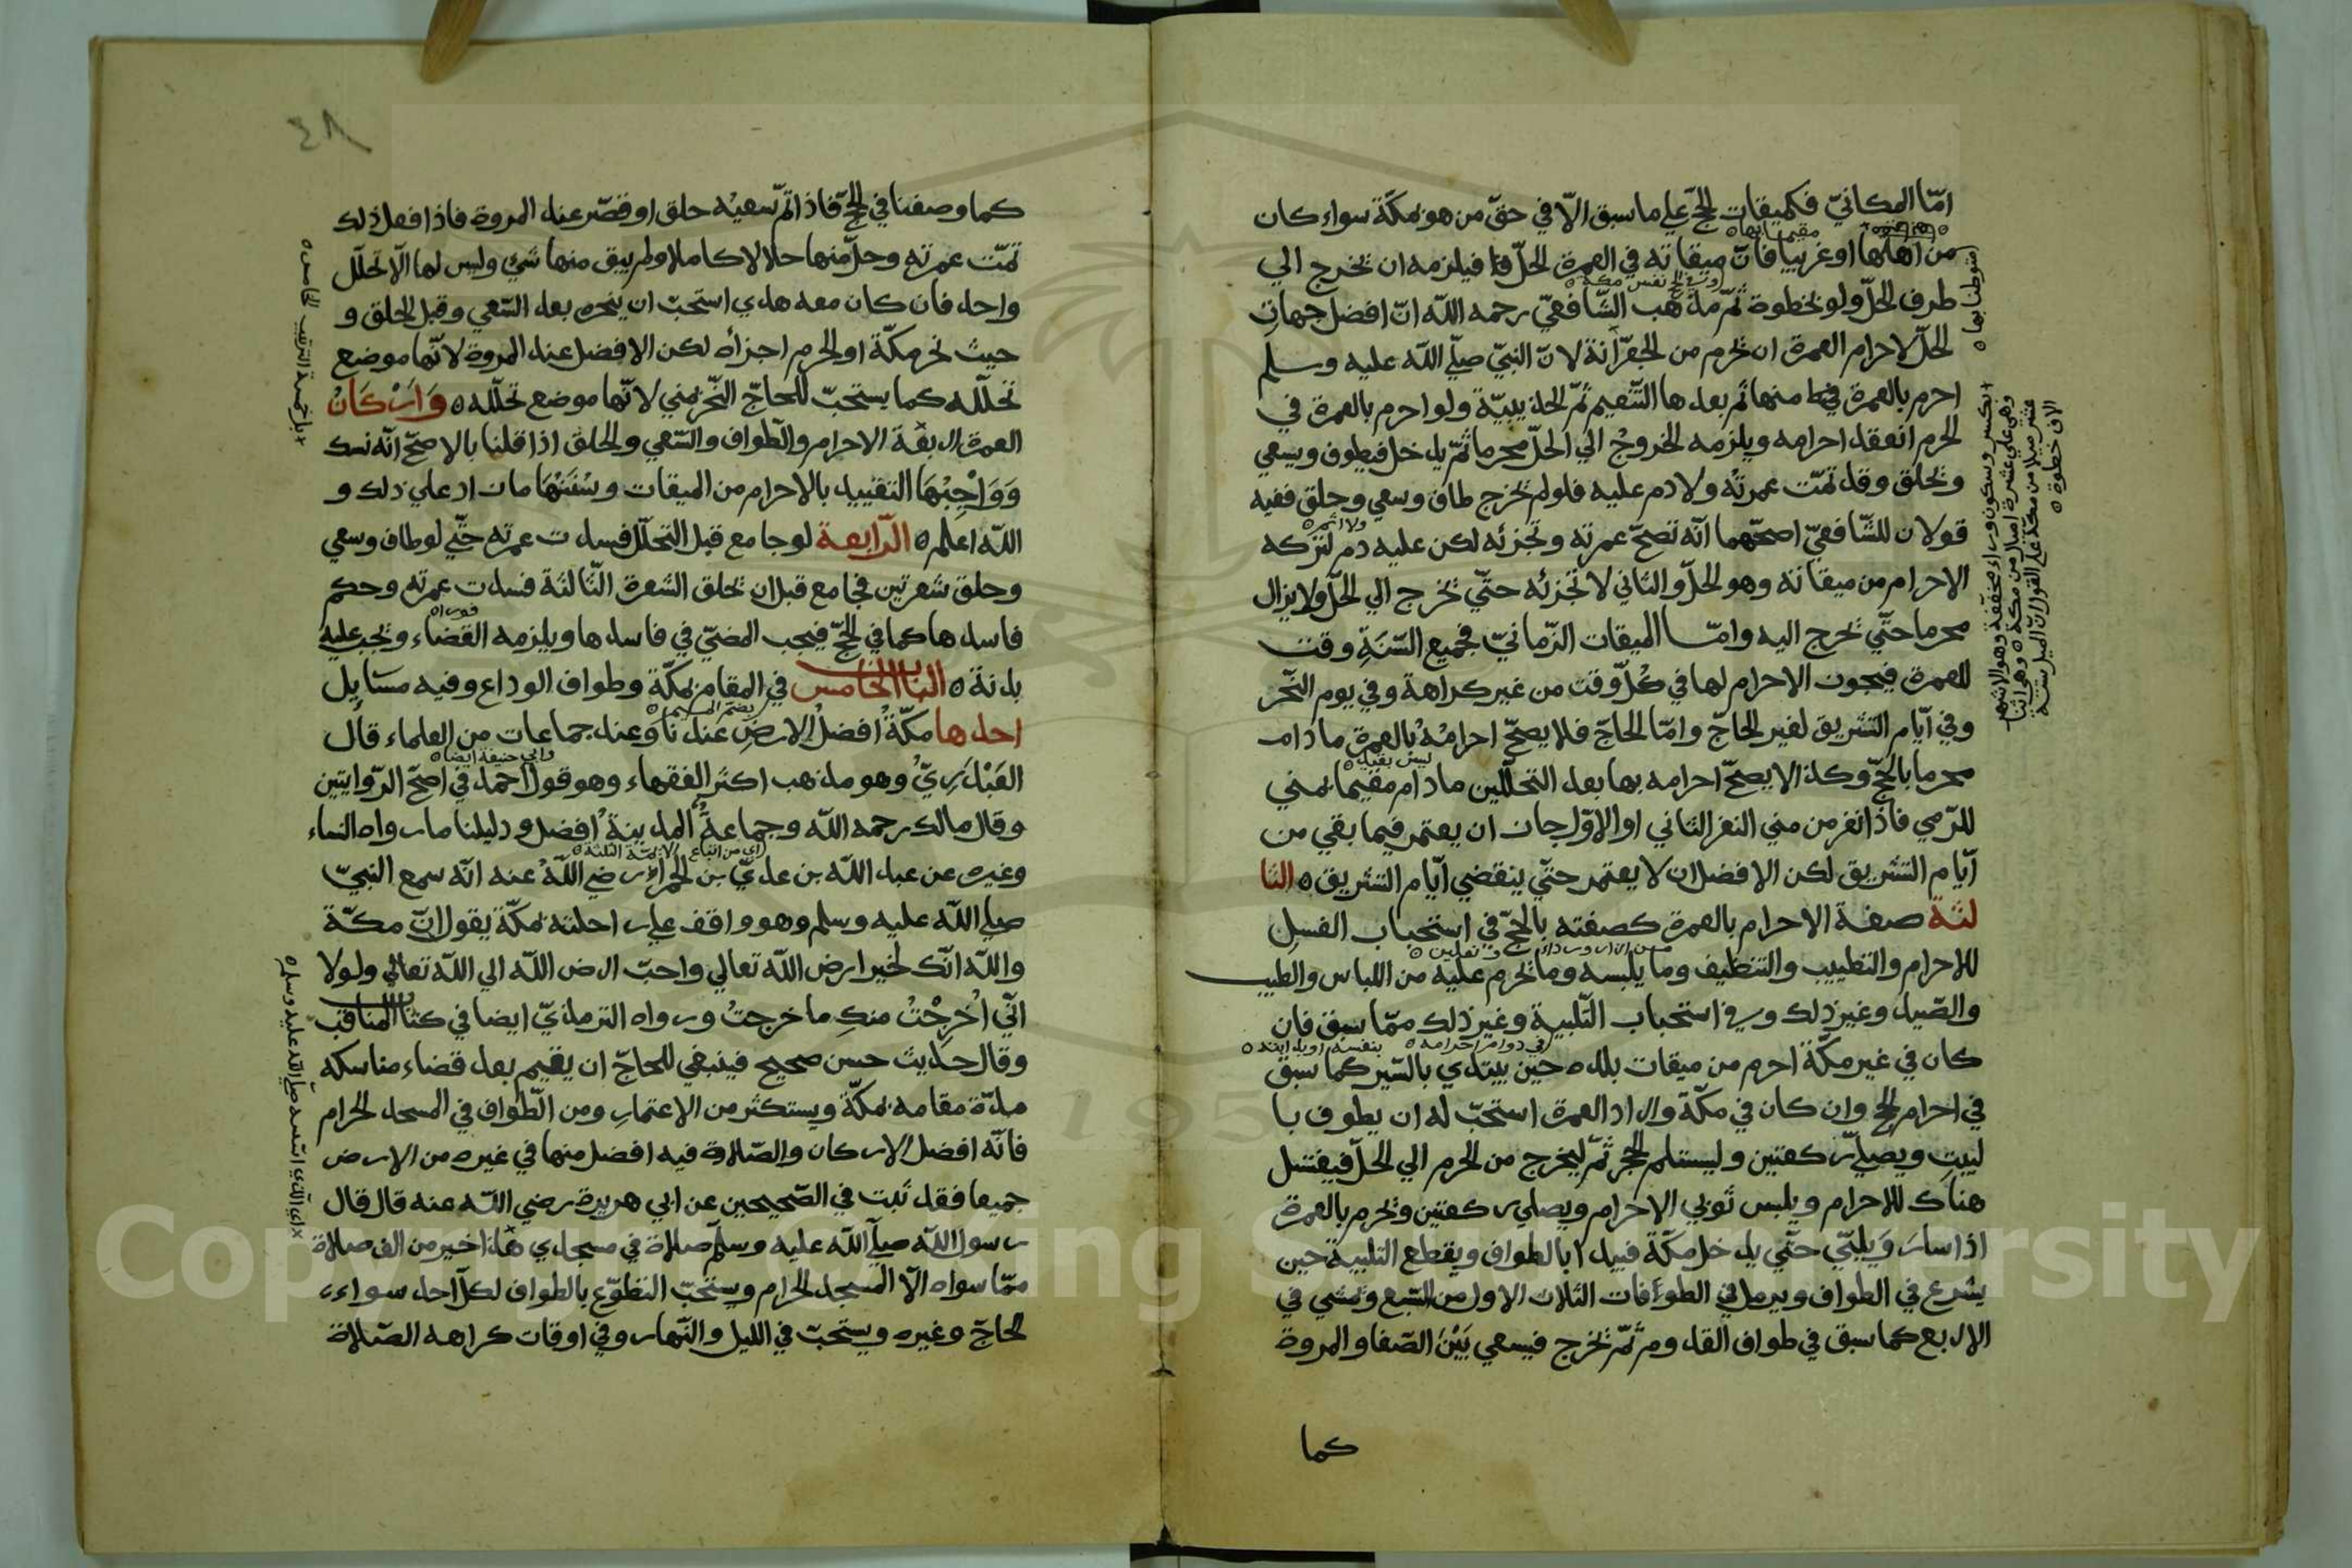 امّا المكانيّ فكميقات الحجّ علي ما سبق الّا في حقّ من هو بمكّة سواء كان
من اهلها او غريبا فانّ ميقاته في العمرة الحلّ فيلزمه ان يخرج الي
طرف الحلّ ولو بخطوة ثمّ مذهب الشّافعيّ رحمه اللّه انّ افضل جهات
الحلّ لاحرام العمرة ان يحرم من الجعرّانة لانّ النبيّ صلّي اللّه عليه وسلم
احرم بالعمرة منها ثم بعدها التّنعيم ثمّ الحديبيّة ولو احرم بالعمرة في
الحرم انعقد احرامه ويلزمه الخروج الي الحلّ محرما ثمّ يدخل فيطوف ويسعي
ويحلق وقد تمّت عمرته ولا دم عليه فلو لم يخرج طاف وسعي وحلق ففيه
قولان للشّافعيّ اصحّهما انّه تصحّ عمرته وتجزئه لكن عليه دم لتركه
الاحرام من ميقاته وهو الحلّ والثاني لا تجزئه حتّي يخرج الي الحلّ ولا يزال
محرما حتّي يخرج اليه وامّا الميقات الزّمانيّ فجميع السّنة وقت
للعمرة فيجوز الاحرام لها في كلّ وقت من غير كراهة وفي يوم النّحر
وفي ايّام التشريق لغير الحاجّ وامّا الحاجّ فلا يصحّ احرامه بالعمرة ما دام
محرما بالحجّ وكذا لا يصحّ احرامه بها بعد التحلّلين ما دام مقيما بمني
للرّمي فاذا نفر من مني النفر الثاني او الاوّل جاز ان يعتمر فيما بقي من
ايّام التشريق لكن الافضل ان لا يعتمر حتّي ينقضي ايّام التشريق ه الثا
لثة صفة الاحرام بالعمرة كصفته بالحجّ في استحباب الغسل
للاحرام والتطييب والتنظيف وما يلبسه وما يحرم عليه من اللباس والطيب
والصّيد وغير ذلك وفي استحباب التّلبية وغير ذلك ممّا سبق فان
كان في غير مكّة احرم من ميقات بلده حين يبتدي بالسّير كما سبق
في احرام الحج وان كان في مكّة واراد العمرة استحبّ له ان يطوف با
لبيت ويصلّي ركعتين وليستلم الحجر ثمّ ليخرج من الحرم الي الحلّ فيغتسل
هناك للاحرام ويلبس ثوبي الاحرام ويصلي ركعتين ويحرم بالعمرة
اذا سار ويلبّي حتّي يدخل مكّة فيبدا بالطواف ويقطع التلبية حين
يشرع في الطواف ويرمل في الطوافات الثلاث الاول من السّبع ويمشي في
الاربع كما سبق في طواف القدوم ثمّ يخرج فيسعي بين الصّفا والمروة
كما
متوطنا بها ه
مقيما بها ه
ولا اثم ه
٤٨
كما وصفنا في الحجّ فاذا تمّ سعيه حلق او قصّر عند المروة فاذا فعل ذلك
تمّت عمرته وحلّ منها حلالا كاملا ولم يبق منها شيئ وليس لها الّا تحلّل
واحد فان كان معه هدي استحبّ ان ينحره بعد السّعي وقبل الحلق و
حيث نحر مكّة او الحرم اجزأه لكن الافضل عند المروة لانّها موضع
تحلّله كما يستحبّ للحاجّ النّحر بمني لانّها موضع تحلّله ه واركان
العمرة اربعة الاحرام والطّواف والسّعي والحلق اذا قلنا بالاصحّ انّه نسك
وواجبها التقييد بالاحرام من الميقات وسننها ما زاد علي ذلك و
اللّه اعلم ه الرّابعة لو جامع قبل التحلّل فسدت عمرته حتّي لو طاف وسعي
وحلق شعرتين فجامع قبل ان يحلق الشعرة الثّالثة فسدت عمرته وحكم
فاسدها كما في الحجّ فيجب المضيّ في فاسدها ويلزمه القضاء ويجب عليه
بدنة ه الباب الخامس في المقام بمكّة وطواف الوداع وفيه مسايل
احدها مكّة افضل الارض عندنا وعند جماعات من العلماء قال
العبدريّ وهو مذهب اكثر الفقهاء وهو قول احمد في اصحّ الرّوايتين
وقال مالك رحمه اللّه وجماعة المدينة افضل ودليلنا ما رواه النساء
وغيره عن عبد اللّه بن عديّ بن الحمراء رضي اللّه عنه انّه سمع النبيّ
صلي اللّه عليه وسلم وهو واقف علي راحلته بمكّة يقول انّ مكّة
واللّه انّك لخير ارض اللّه تعالي واحبّ ارض اللّه الي اللّه تعالي ولولا
انّي اخرجت منك ما خرجت ورواه الترمذيّ ايضا في كتاب المناقب
وقال حديث حسن صحيح فينبغي للحاجّ ان يقيم بعد قضاء مناسكه
مدّة مقامه بمكّة ويستكثر من الاعتمار ومن الطّواف في المسجد الحرام
فانّه افضل الاركان والصّلاة فيه افضل منها في غيره من الارض
جميعا فقد ثبت في الصّحيحين عن ابي هريرة رضي اللّه عنه قال قال
رسول اللّه صلّي اللّه عليه وسلّم صلاة في مسجدي هذا خير من الف صلاة
ممّا سواه الّا المسجد الحرام ويستحبّ التطوّع بالطواف لكلّ احد سواء
الحاجّ وغيره ويستحبّ في الليل والنّهار وفي اوقات كراهه الصّلاة
فورا ه
بضمّ الميم ه
وابي حنيفة ايضا ه
اي من اتباع الائمّة الثلثة ه
اي الّذي اسّسه صلّي اللّه عليه وسلم ه
Copyright © King Saud University
1957